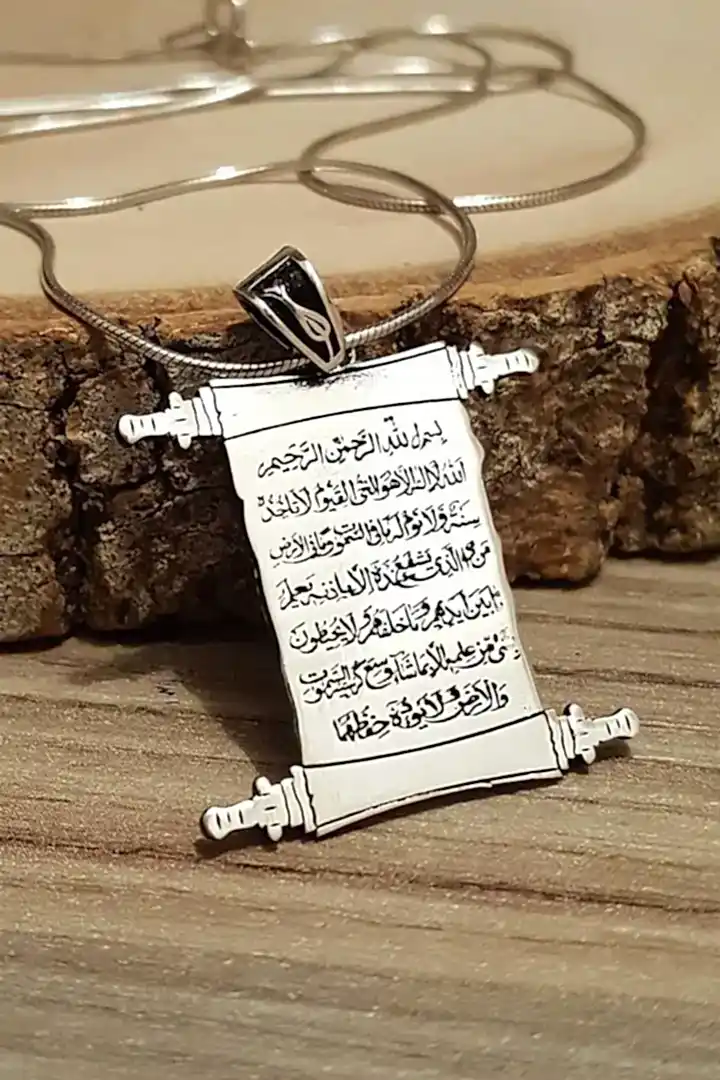 بسم الله الرحمن الرحيم
الله لا اله الا هو الحي القيوم لا تأخذه
سنة ولا نوم له ما في السموت وما في الأرض
من ذا الذي يشفع عنده الا باذنه يعلم
ما بين ايديهم وما خلفهم ولا يحيطون
بشئ من علمه الا بما شاء وسع كرسيه السموت
والارض ولا يؤده حفظهما